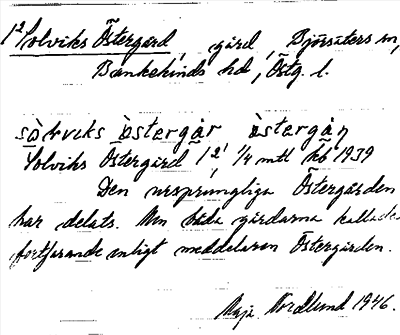 1² Solviks Östergård, gård, Björsäters sn,
Bankekinds hd, Östg. l.
sò̱lvɩks ò̱stergår ò̱stergån
Solviks Östergård 1², 1/4 mtl kb 1939
Den ursprungliga Östergården
har delats. Men båda gårdarna kallades
fortfarande enligt meddelaren Östergården.
Maja Nordlund 1946.